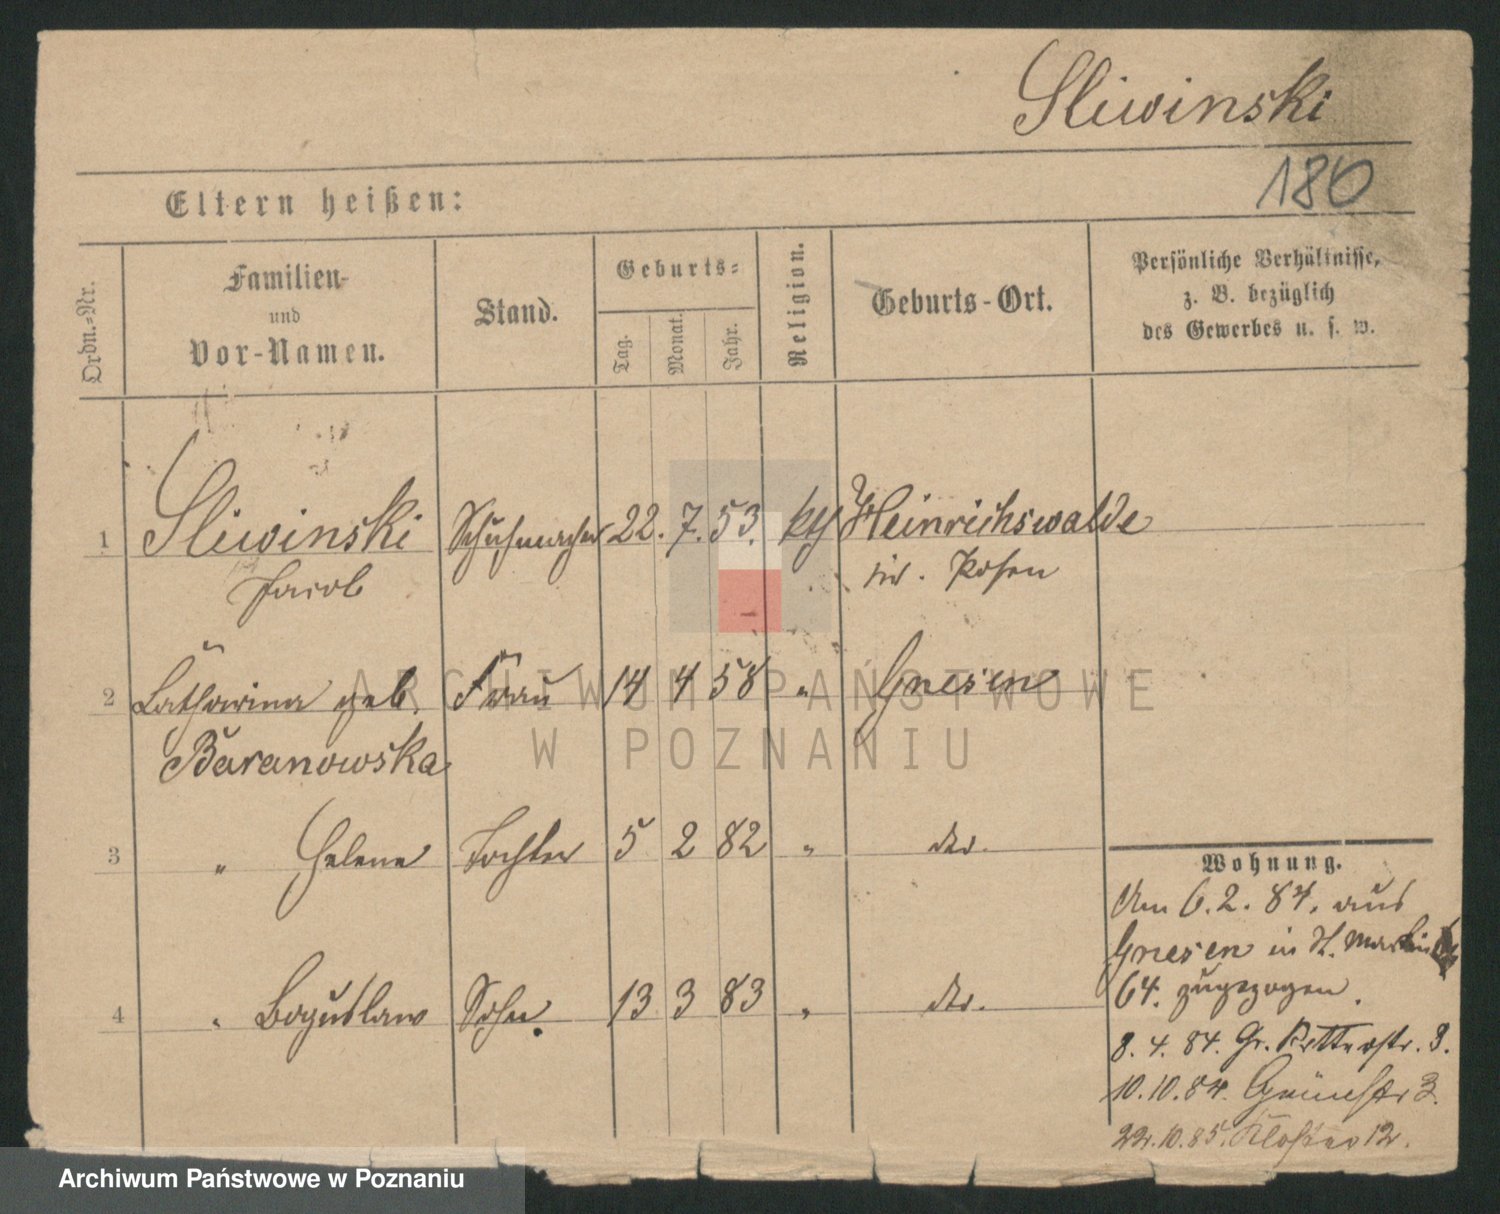 Sliwinski
186
Eltern heißen:
Ordn.-Nr.
Familien-
und
Vor-Namen.
Stand.
Geburts-
Tag.
Monat.
Jahr.
Religion.
Geburts-Ort.
Persönliche Verhältnisse,
z. B. bezüglich
des Gewerbes u. s. w.
1 Sliwinski Schuhmacher 22. 7. 53. kth Heinrichswalde
Jacob Posen
2 Catharina geb. Frau 14 4 58 " Gnesen
Baranowska
3 " Helene Tochter 5 2 82 " dto.
4 " Boguslaw Sohn 13 3 83 " dto.
Wohnung.
Am 6. 2. 84. aus
Gnesen in St. Martin
64. zugezogen.
8. 4. 84. Gr. Ritterstr. 3.
10.10.84. Grünestr 3.
22.10.85. Kloster 12.
ARCHIWUM PAŃSTWOWE
W POZNANIU
Archiwum Państwowe w Poznaniu